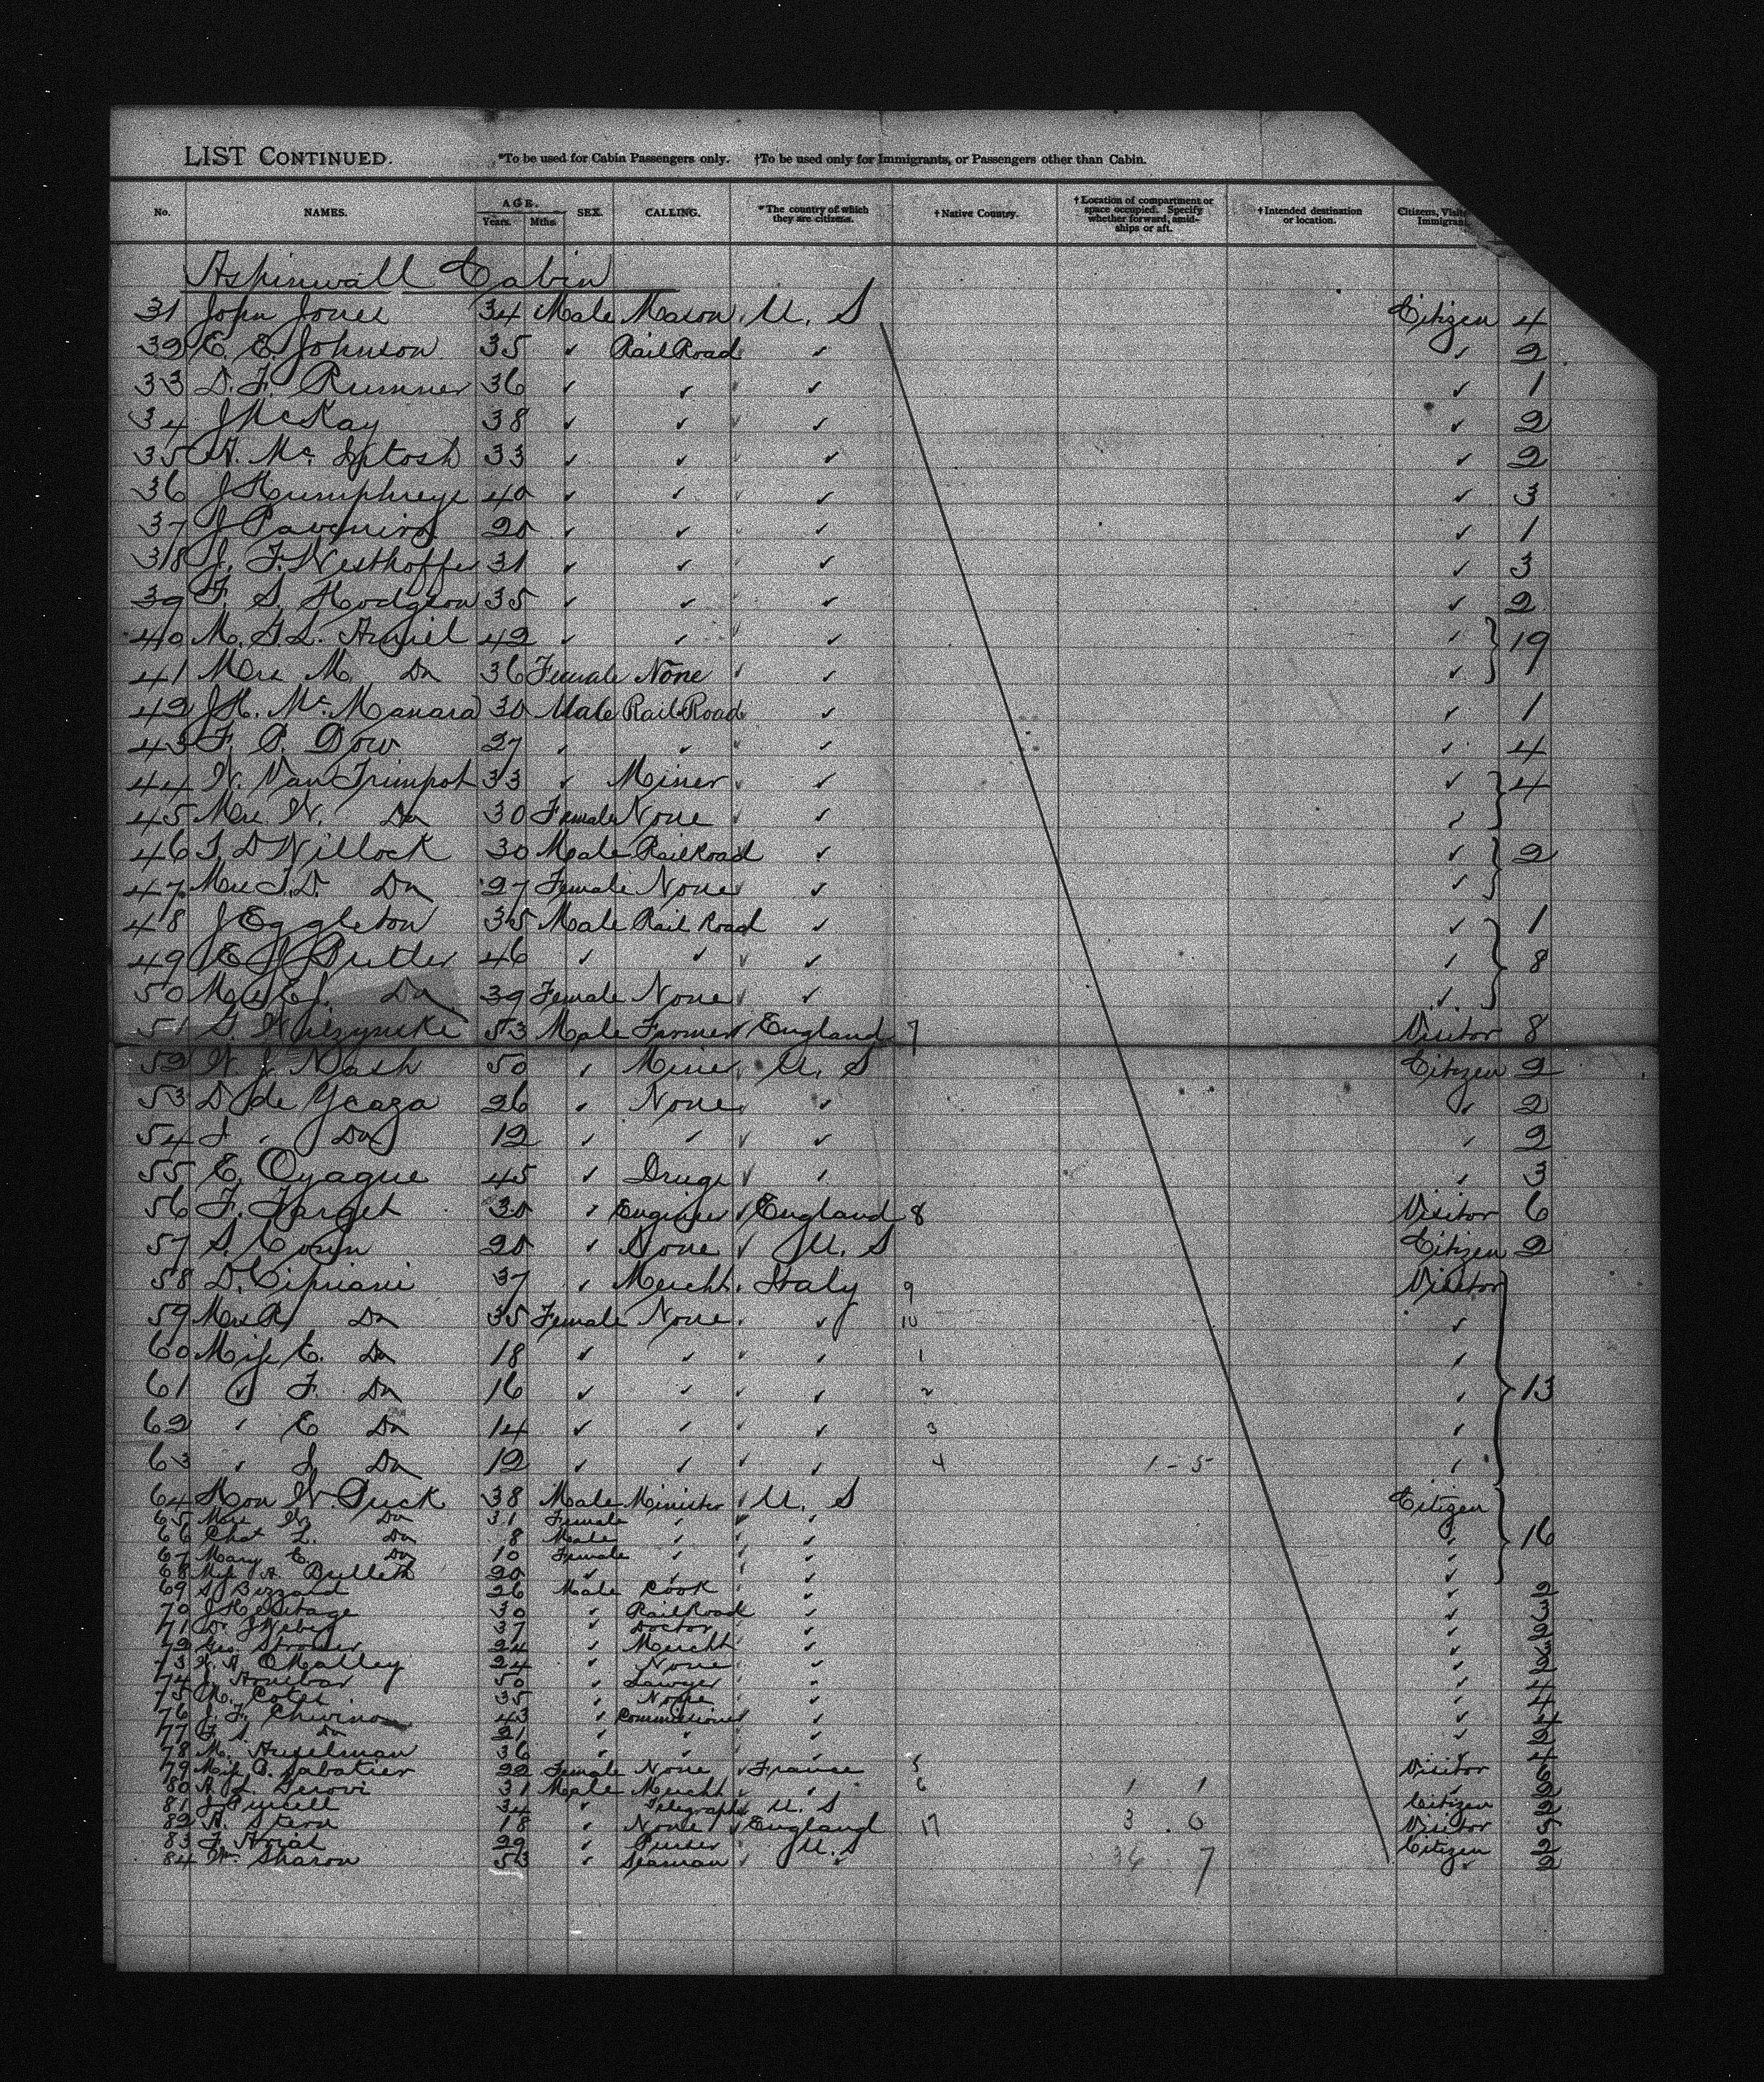 LIST CONTINUED. *To be used for Cabin Passengers only. †To be used only for Immigrants, or Passengers other than Cabin.
No. NAMES. AGE. Years. Mths. SEX. CALLING. *The country of which they are citizens. †Native Country. †Location of compartment or space occupied. Specify whether forward, amidships or aft. †Intended destination or location. Citizens,
Aspinwall Cabin
31 John Jones 34 Male Mason U. S Citizen 4
32 E. E. Johnson 35 ✓ RailRoad ✓ ✓ 2
33 D. F. 36 ✓ ✓ ✓ ✓ 1
34 J McKay 38 ✓ ✓ ✓ ✓ 2
35 A. Mc Intosh 33 ✓ ✓ ✓ ✓ 2
36 J Humphreys 40 ✓ ✓ ✓ ✓ 3
37 J 20 ✓ ✓ ✓ ✓ 1
38 J. F. Westhoffer 31 ✓ ✓ ✓ ✓ 3
39 F. S. Hodgson 35 ✓ ✓ ✓ ✓ 2
40 M. G. L. 42 ✓ ✓ ✓ ✓ 19
41 Mrs M. Do 36 Female None ✓ ✓
42 J H. Mc Manara 30 Male RailRoad ✓ ✓ 1
43 F. P. Dow 27 ✓ ✓ ✓ ✓ 4
44 W. Van Trimpot 33 ✓ Miner ✓ ✓ 4
45 Mrs W. Do 30 Female None ✓ ✓
46 T. D Willock 30 Male RailRoad ✓ ✓ 2
47 Mrs T. D. Do 27 Female None ✓ ✓
48 J Eggleton 35 Male Rail Road ✓ ✓ 1
49 E J Butler 46 ✓ ✓ ✓ ✓ 8
50 Mrs E J. Do 39 Female None ✓ ✓
51 53 Male Farmer England 7 Visitor 8
52 W. J. Nash 50 ✓ Miner U. S Citizen 2
53 D de Ycaza 26 ✓ None ✓ ✓ 2
54 J ✓ Do 12 ✓ ✓ ✓ ✓ 2
55 E. Oyague 45 ✓ Drugs ✓ ✓ 3
56 F. Target 30 ✓ Engineer England 8 Visitor 6
57 S. 20 ✓ None U. S Citizen 2
58 D. Cipriani 37 ✓ Mercht. Italy 9 Visitor
59 Mrs Do 35 Female None ✓ 10 ✓
60 Miss E. Do 18 ✓ ✓ ✓ 1 ✓
61 ✓ F. Do 16 ✓ ✓ ✓ 2 ✓ 13
62 ✓ E Do 14 ✓ ✓ ✓ 3 ✓
63 ✓ J Do 12 ✓ ✓ ✓ 4 1-5 ✓
64 Hon W. 38 Male Minister U. S Citizen
65 Mrs W. Do 31 Female ✓ ✓ ✓
66 Chas L. Do 8 Male ✓ ✓ ✓ 16
67 Mary E. Do 10 Female ✓ ✓ ✓
68 Miss A. 20 ✓ ✓ ✓ ✓
69 S. Bizzard 26 Male Cook ✓ ✓ 2
70 J Heritage 30 ✓ RailRoad ✓ ✓
71 Dr J 37 ✓ Doctor ✓ ✓
72 Geo. 24 ✓ Mercht ✓ ✓
73 OMalley 24 ✓ None ✓ ✓
74 J. 50 ✓ Lawyer ✓ ✓ 4
75 M. 35 ✓ None ✓ ✓ 4
76 J. F. 43 ✓ ✓ ✓
77 F. S. Do 21 ✓ ✓ ✓ ✓
78 M. Anselman 36 ✓ ✓ ✓ ✓ 4
79 Miss Sabatier 22 Female None France 5 Visitor
80 A. L. 31 Male Mercht ✓ 6 1 1 ✓
81 J 34 ✓ Telegraph U. S Citizen 2
82 A. Stern 18 ✓ None England 17 3 . 6 Visitor 5
83 F. 29 ✓ U. S Citizen 2
84 Wm Sharon 53 ✓ Seaman ✓ 36 7 ✓ 2